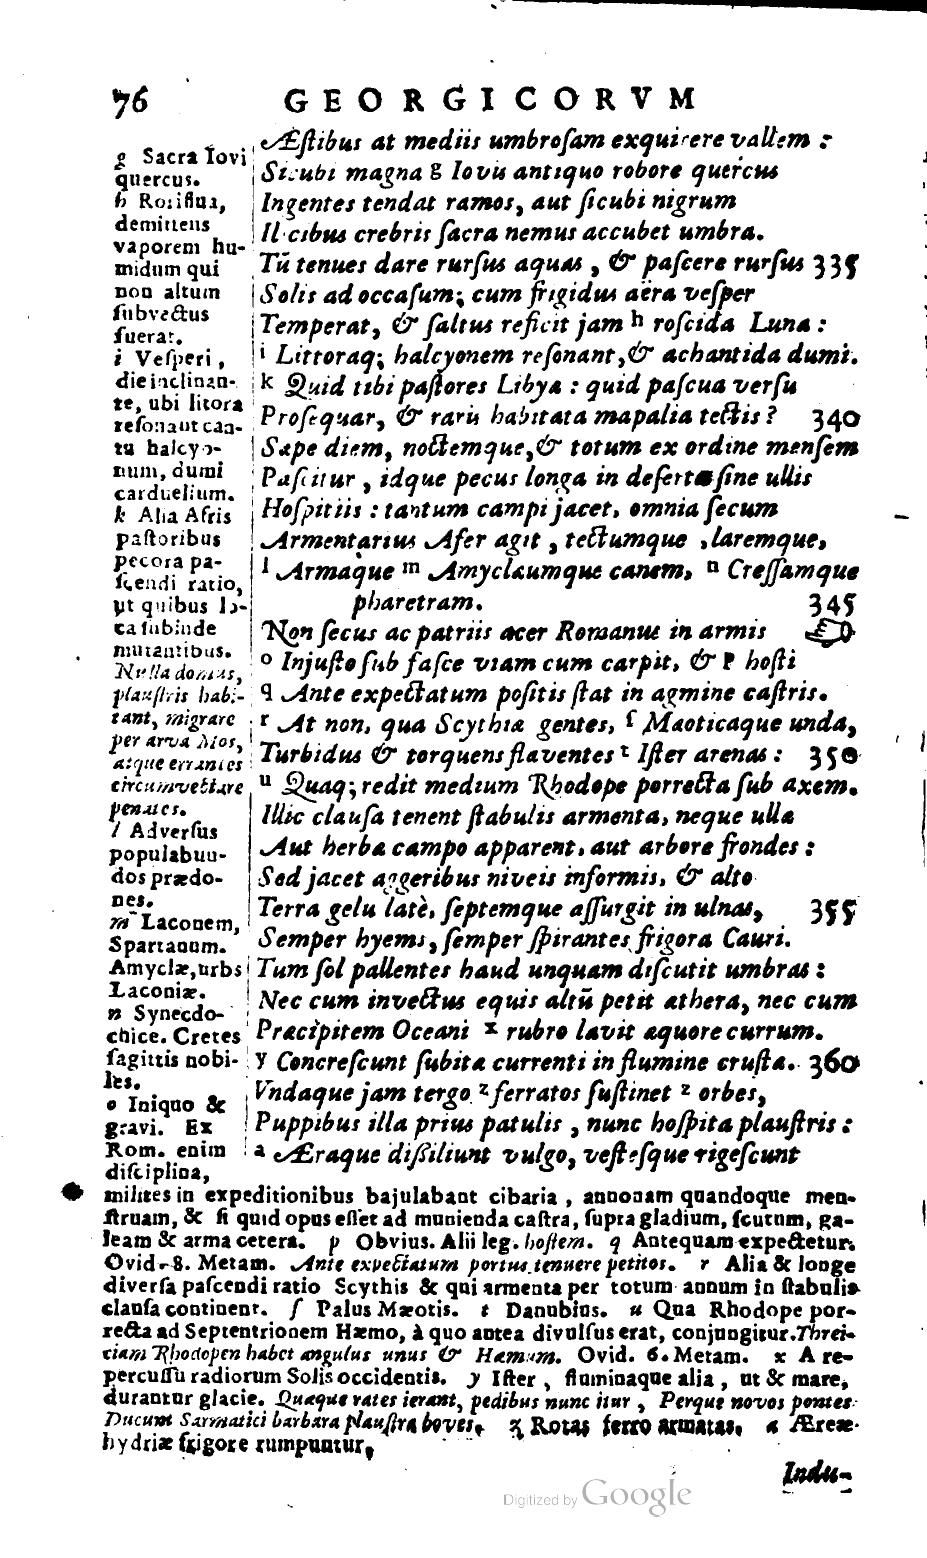 76 GEORGICORVM
Æſtibus at mediis umbroſam exquirere vallem :
Sicubi magna g Iovis antiquo robore quercus
Ingentes tendat ramos, aut ſicubi nigrum
Ilicibus crebris ſacra nemus accubet umbra.
Tū tenues dare rurſus aquas , & paſcere rurſus 335
Solis ad occaſum; cum frigidus aëra veſper
Temperat, & ſaltus reficit jam h roſcida Luna :
i Littoraq; halcyonem reſonant, & achantida dumi.
k Quid tibi paſtores Libyæ : quid paſcua verſu
Proſequar, & raris habitata mapalia tectis ? 340
Sæpe diem, noctemque, & totum ex ordine menſem
Paſcitur , idque pecus longa in deſerta ſine ullis
Hoſpitiis : tantum campi jacet, omnia ſecum
Armentarius Afer agit , tectumque , laremque,
l Armaque m Amyclæumque canem, n Creſſamque
pharetram. 345
Non ſecus ac patriis acer Romanus in armis
o Injuſto ſub faſce viam cum carpit, & p hoſti
q Ante expectatum poſitis ſtat in agmine caſtris.
r At non, qua Scythiæ gentes, ſ Mæoticaque unda,
Turbidus & torquens flaventes t Iſter arenas : 350
u Quaq; redit medium Rhodope porrecta ſub axem.
Illic clauſa tenent ſtabulis armenta, neque ullæ
Aut herbæ campo apparent, aut arbore frondes :
Sed jacet aggeribus niveis informis, & alto
Terra gelu latè, ſeptemque aſſurgit in ulnas, 355
Semper hyems, ſemper ſpirantes frigora Cauri.
Tum ſol pallentes haud unquam diſcutit umbras :
Nec cum invectus equis altū petit æthera, nec cum
Præcipitem Oceani x rubro lavit æquore currum.
y Concreſcunt ſubitæ currenti in flumine cruſtæ. 360
Vndaque jam tergo z ferratos ſuſtinet z orbes,
Puppibus illa prius patulis , nunc hoſpita plauſtris :
a Æraque diſſiliunt vulgo, veſteſque rigeſcunt
g Sacra Iovi
quercus.
h Roriflua,
demittens
vaporem hu-
midum qui
non altum
ſubvectus
fuerat.
i Veſperi ,
die inclinan-
te, ubi litora
reſonant can-
tu halcyo-
num, dumi
carduelium.
k Alia Afris
paſtoribus
pecora pa-
ſcendi ratio,
ut quibus lo-
ca ſubinde
mutantibus.
Nulla domus,
plauſtris habi-
tant, migrare
per arva Mos,
atque errantes
circumvectare
penates.
l Adverſus
populabun-
dos prædo-
nes.
m Laconem,
Spartanum.
Amyclæ, urbs
Laconiæ.
n Synecdo-
chice. Cretes
ſagittis nobi-
les.
o Iniquo &
gravi. Ex
Rom. enim
diſciplina,
milites in expeditionibus bajulabant cibaria , annonam quandoque men-
ſtruam, & ſi quid opus eſſet ad munienda caſtra, ſupra gladium, ſcutum, ga-
leam & arma cetera. p Obvius. Alii leg. hoſtem. q Antequam expectetur.
Ovid. 8. Metam. Ante expectatum portus tenuere petitos. r Alia & longe
diverſa paſcendi ratio Scythis & qui armenta per totum annum in ſtabulis
clauſa continent. ſ Palus Mæotis. t Danubius. u Qua Rhodope por-
recta ad Septentrionem Hæmo, à quo antea divulſus erat, conjungitur. Threi-
ciam Rhodopen habet angulus unus & Hæmum. Ovid. 6. Metam. x A re-
percuſſu radiorum Solis occidentis. y Iſter , fluminaque alia , ut & mare,
durantur glacie. Quaque rates ierant, pedibus nunc itur , Perque novos pontes
Ducunt Sarmatici barbara plauſtra boves. z Rotas ferro armatas. a Æreæ
hydriæ frigore rumpuntur,
Indu-
Digitized by Google